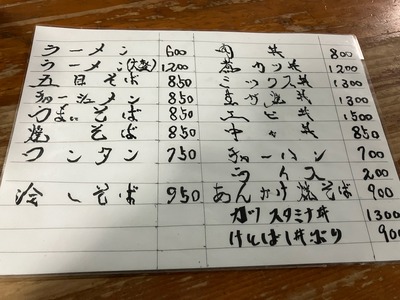 ラーメン 600
ラーメン(大盛) 1200
五目そば 850
チャーシューメン 850
うまにそば 850
焼そば 850
ワンタン 750
冷しそば 950
肉丼 800
煮カツ丼 1200
ミックス丼 1300
1300
エビ丼 1500
中華丼 850
チャーハン 700
ライス 200
あんかけ焼そば 900
カツスタミナ丼 1300
けんばし丼ぶり 900